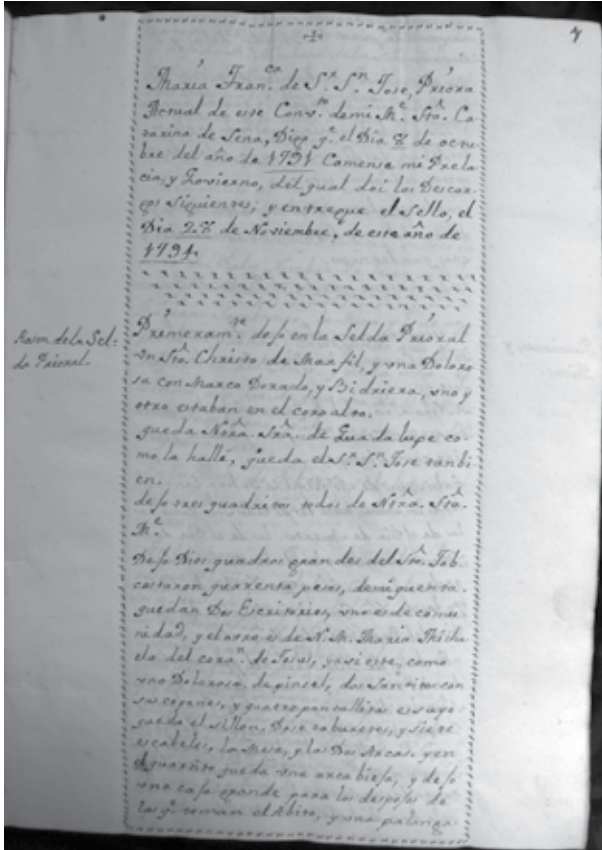 Maria Fran.ca de S.r S.n Jose, Priora
Actual de este Conv.to de mi M.e Sta. Ca-
tarina de Sena, Digo q.e el Dia 8 de octu-
bre del año de 1791 Comense mi Prela
cia, y Govierno, del qual doi los Descar-
gos siguientes, y entregue el sello, el
Dia 28 de Noviembre, de este año de
1794.
Rason de la Sel-
da Prioral.
Primeram.te deso en la Selda Prioral
vn Sto. Christo de Marfil, y vna Doloro
sa con Marco Dorado, y Bidriera, vno y
otro estaban en el coro alto.
queda Ntra. Sra. de Guadalupe co-
mo la hallé, queda el S.r S.n Jose tanbi-
en.
deso tres quadritos todos de Ntra. Sta.
M.e
Deso Dies quadros grandes del Sto. Job
costaron quarenta pesos, de mi quenta.
quedan Dos Escritorios, vno es de comu-
nidad, y el otro es de N. M. Maria Micha
ela del cora.n de Jesus, y asi este, como
vna Dolorosa, de pinsel, dos Santitos con
sus
y quatro pantallitas es suyo
queda el sillon, Dose taburetes, y siete
escabeles, la Mesa, y las Dos Arcas. y en
el quartito queda vna arca biesa, y deso
vna casa grande para los desposos de
las q.e toman el Abito, y vna palanga-